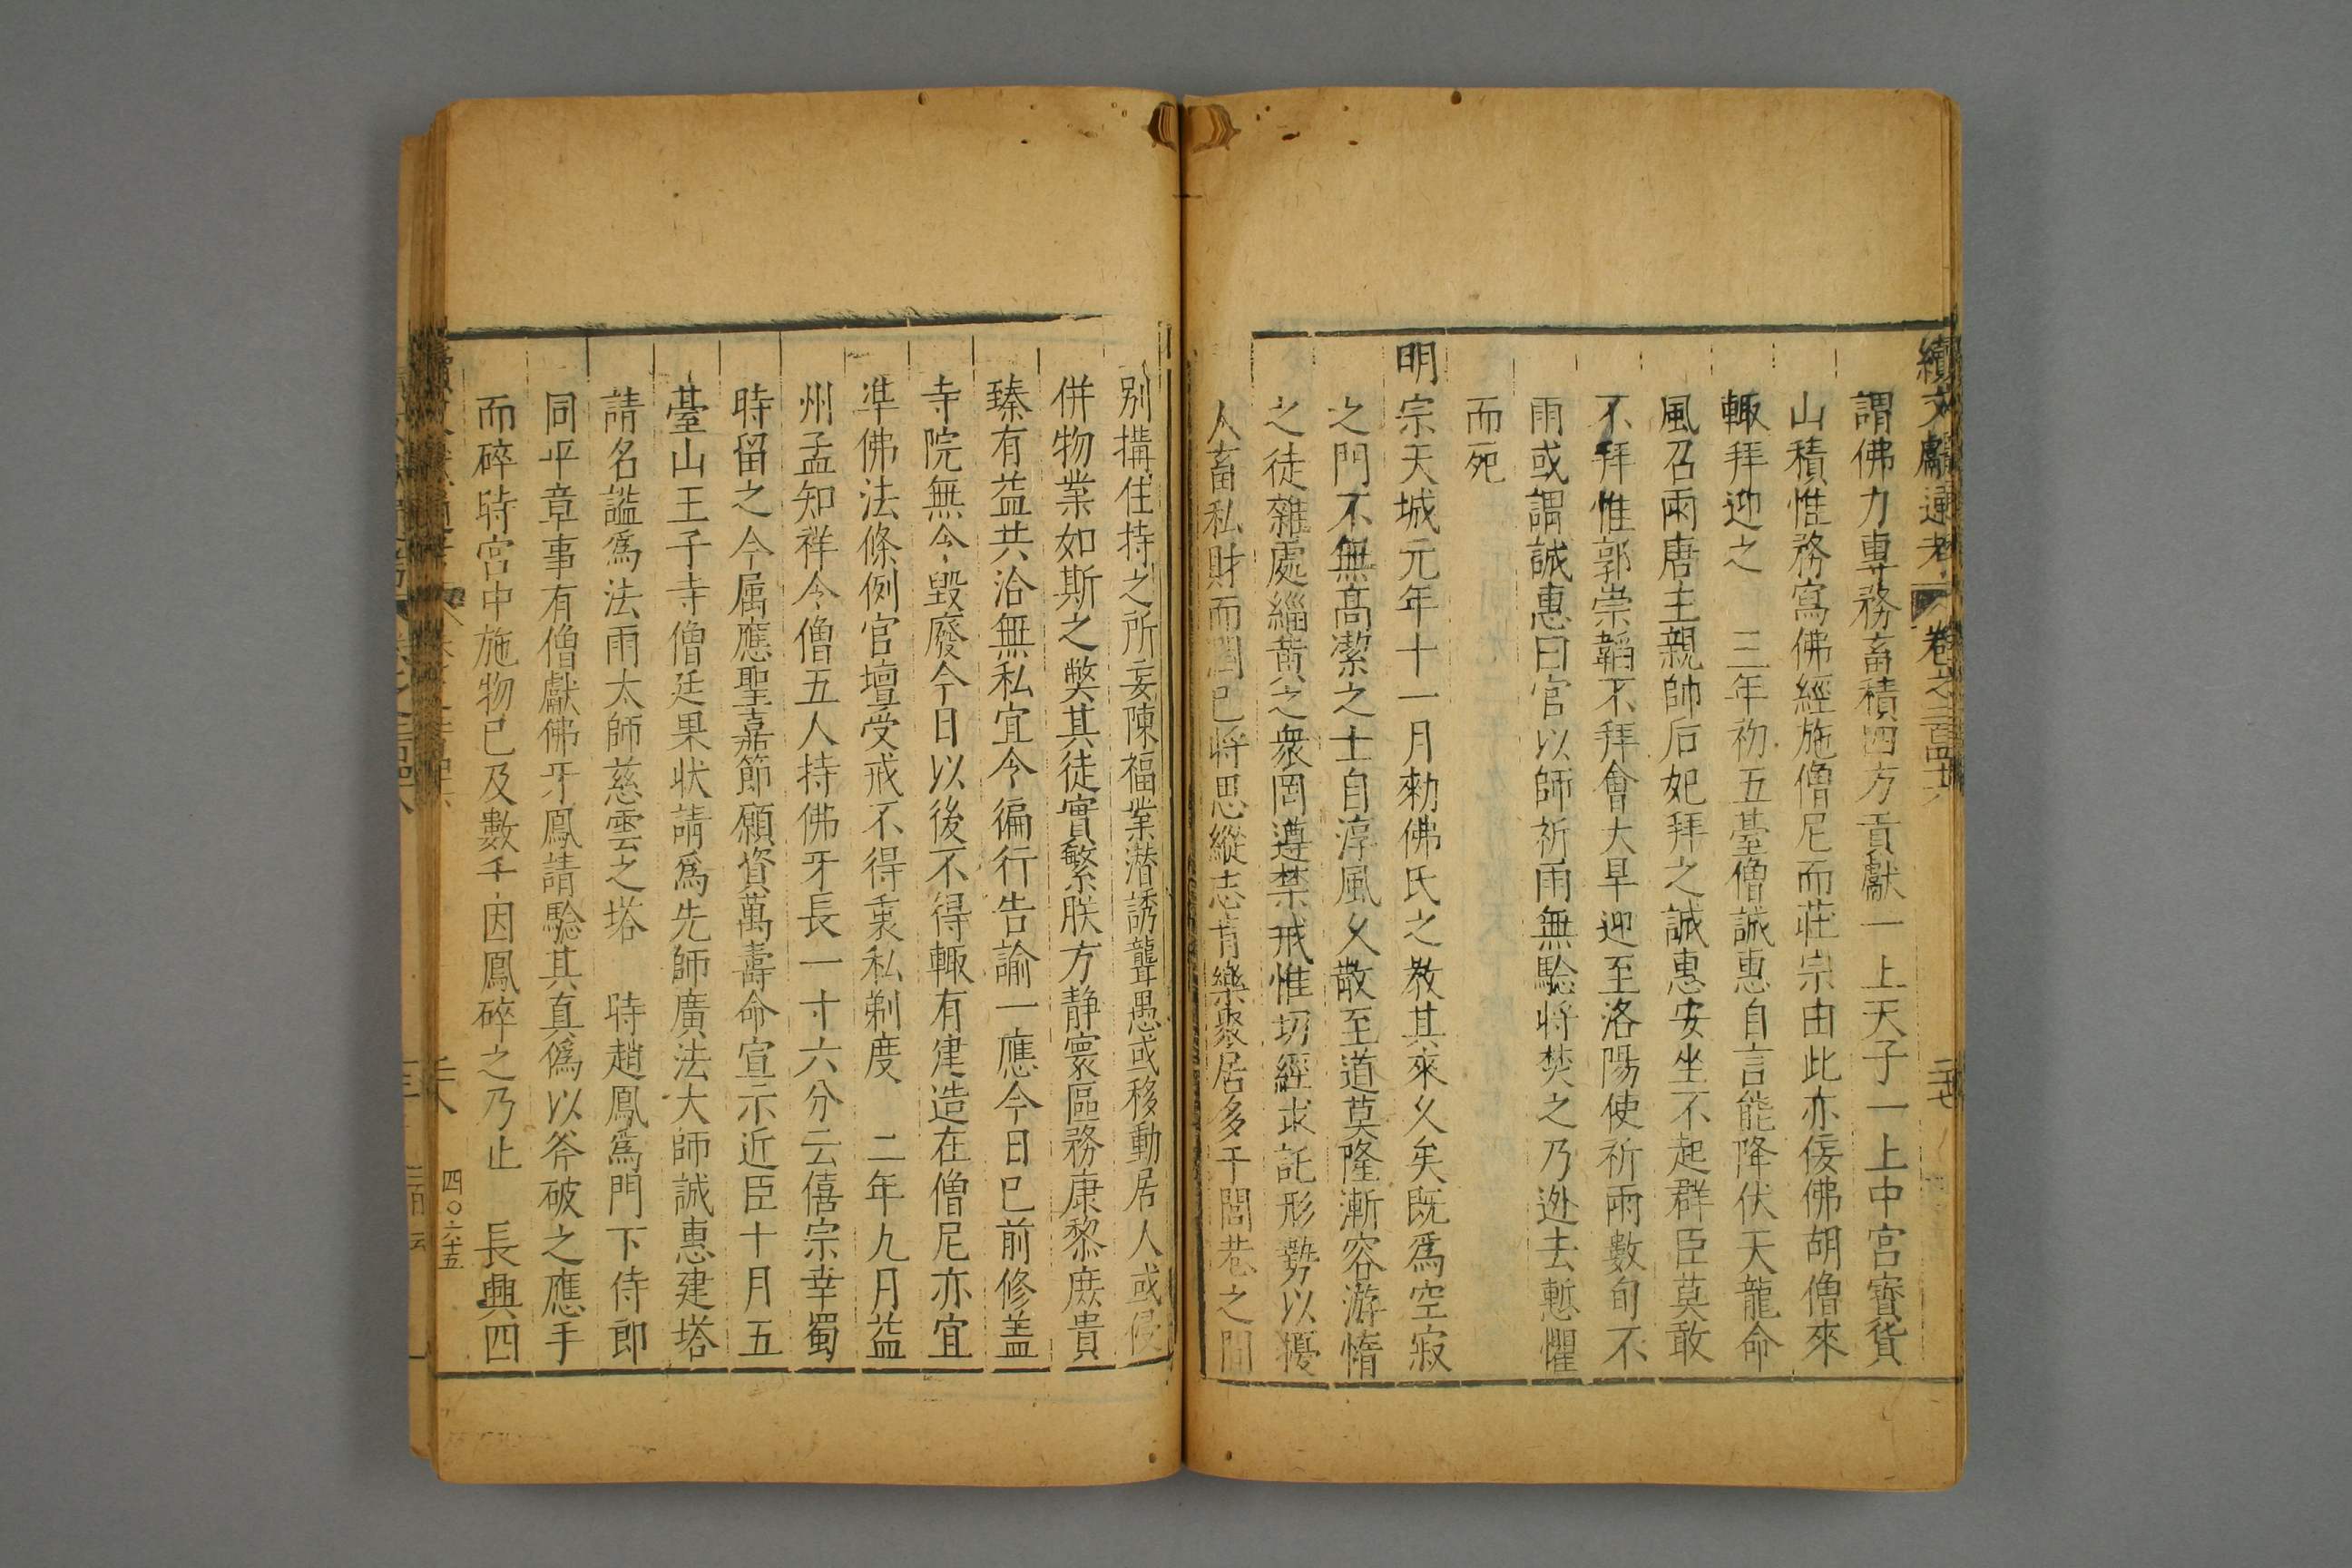 續文獻通考 卷之二百四十六
謂佛力專務畜積四方貢獻一上天子一上中宮寶貨
山積惟務寫佛經施僧尼而莊宗由此亦佞佛胡僧來
輙拜迎之 三年初五臺僧誠惠自言能降伏天龍命
風召雨唐主親帥后妃拜之誠惠安坐不起群臣莫敢
不拜惟郭崇韜不拜會大旱迎至洛陽使祈雨數旬不
雨或謂誠惠曰官以師祈雨無騐将焚之乃逃去慙懼
而死
明宗天城元年十一月勑佛氏之教其來乆矣既爲空寂
之門不無髙潔之士自淳風乆散至道莫隆漸容游惰
之徒雜處緇黄之衆罔遵禁戒惟切經求託形勢以擾
人畜私財而潤已将思縱志肯樂衆居多于閭巷之間
别搆住持之所妄陳福業潜誘聾愚或移動居人或侵
併物業如斯之弊其徒實繁朕方静寰區務康黎庶貴
臻有益共洽無私宜令徧行告諭一應今日已前修盖
寺院無令毀廢今日以後不得輙有建造在僧尼亦宜
凖佛法條例官壇受戒不得衷私剃度 二年九月益
州孟知祥令僧五人持佛牙長一寸六分云僖宗幸蜀
時留之今属應聖嘉節願資萬壽命宣示近臣十月五
臺山王子寺僧廷果状請爲先師廣法大師誠惠建塔
請名謚爲法雨大師慈雲之塔 時趙鳳爲門下侍郎
同平章事有僧獻佛牙鳳請騐其真僞以斧破之應手
而碎時宮中施物已及數千因鳳碎之乃止 長興四
四〇六十五